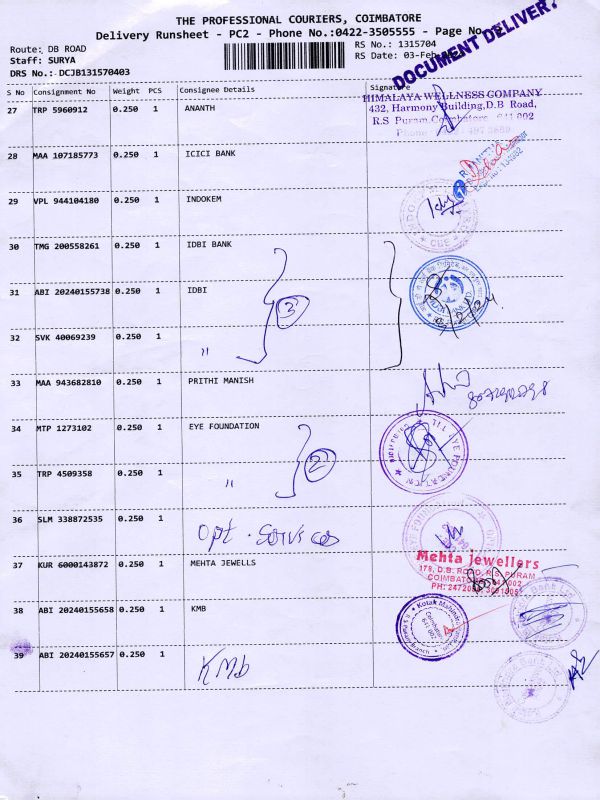 THE PROFESSIONAL COURIERS, COIMBATORE
Delivery Runsheet - PC2 - Phone No.:0422-3505555 - Page No.
DOCUMENT DELIVERY
Route: DB ROAD
RS No.: 1315704
Staff: SURYA
RS Date: 03-Feb
DRS No.: DCJB131570403
S No Consignment No Weight PCS Consignee Details Signature
27 TRP 5960912 0.250 1 ANANTH
HIMALAYA WELLNESS COMPANY
432, Harmony Building, D.B Road,
R.S Puram, Coimbatore 641 002
Phone
28 MAA 107185773 0.250 1 ICICI BANK
29 VPL 944104180 0.250 1 INDOKEM
30 TMG 200558261 0.250 1 IDBI BANK
31 ABI 20240155738 0.250 1 IDBI
3
32 SVK 40069239 0.250 1 "
33 MAA 943682810 0.250 1 PRITHI MANISH
34 MTP 1273102 0.250 1 EYE FOUNDATION
2
35 TRP 4509358 0.250 1 "
36 SLM 338872535 0.250 1 Opt. Services
37 KUR 6000143872 0.250 1 MEHTA JEWELLS
Mehta Jewellers
178, D.B. ROAD, R.S. PURAM
COIMBATORE
PH:
38 ABI 20240155658 0.250 1 KMB
Kotak Mahindra
Coimbatore
39 ABI 20240155657 0.250 1 KMb